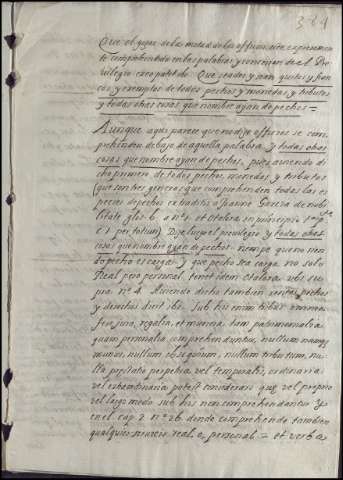 384
Que el gozar de la metad de los officios viene expresamen
te comprehendido en las palabras y concesion de el Pri
vilegio exceptado. Que seades y sean quitos y fran
cos y exemptos de todos pechos y monedas, y tributos
y todas otras cosas que nombre ayan de pechos =
Aunque aqui parece que no dixo officios se com
prehenden debajo de aquella palabra y todas otras
cosas que nombre ayan de pechos, pues aviendo di
cho primero de todos pechos, monedas y tributos
(que son tres generos que comprehenden todas las es
pecies de pechos ex traditis a Joanne Garcia de nobi
litate glos. 6. a nº 1. et Otalora in principio
per totum) Dize luego el privilegio y todas otras
cosas que nombre ayan de pechos. siempre que no sien
do pecho es carga, y que pecho sea carga no solo
Real pero personal, tenet idem Otalora ubi su
pra nº 4. Aviendo dicho tambien rentas pechos
y derechos dixit ibi. Sub his enim tribus nomina
regalia, et munera tam patrimonialia
quam personalia comprehenduntur, nullum namque
munus, nullum obsequium, nullum tributum, nu
lla prestatio perpetua vel temporalis, ordinaria
vel extraordinaria potest considerari que vel proprio
vel largo modo sub his non comprehendantur. Y
en el cap. 2. nº 26. donde comprehende tambien
qualquier servicio real, o personal = et verba